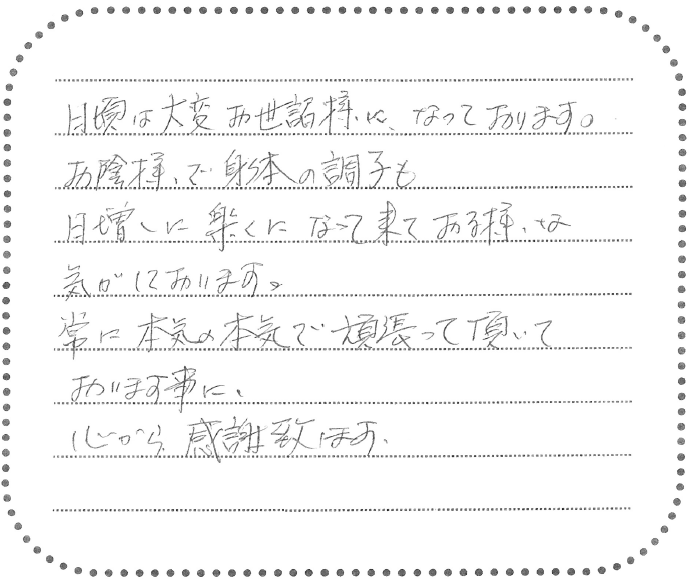 日頃は大変お世話様に、なっております。
お陰様で、身体の調子も
日増しに楽くになって来ておる様な
気がしております。
常に本気の本気で頑張って頂いて
おります事に、
心から感謝致します。